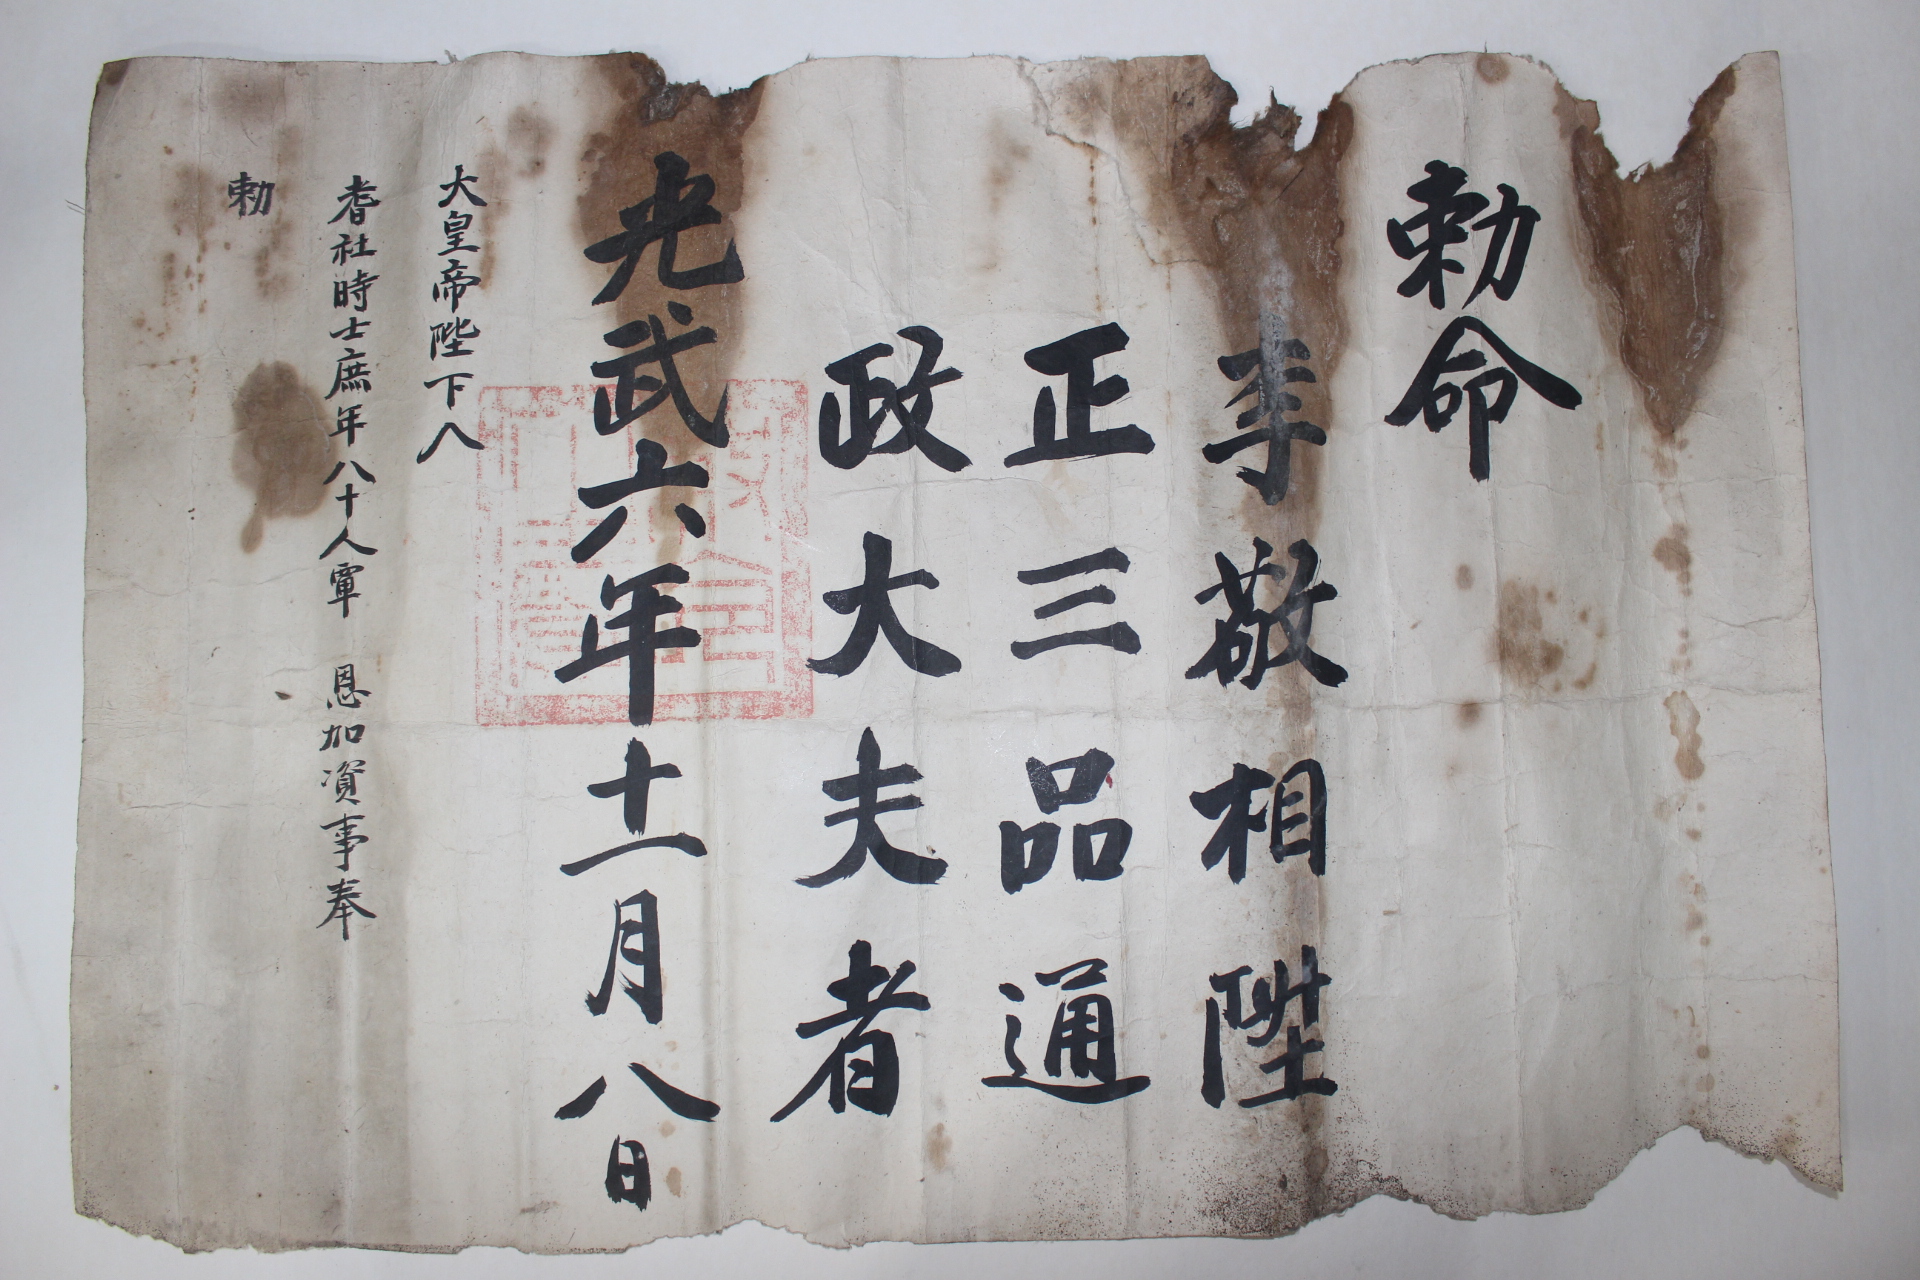 勅命
李敬相陞
正三品通
政大夫者
光武六年十一月八日
大皇帝陛下入
耆社時士庶年八十人覃 恩加資事奉
勅